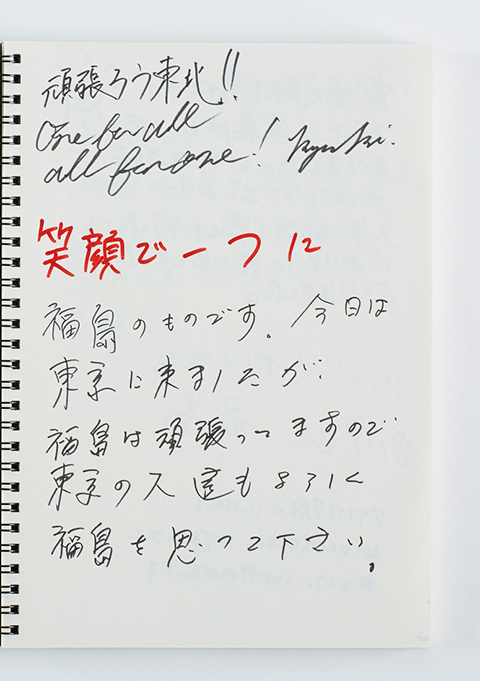 頑張ろう東北!!
One for all
all for one!
笑顔で一つに
福島のものです。今日は
東京に来ましたが、
福島は頑張ってますので
東京の人達もよろしく
福島を思って下さい。